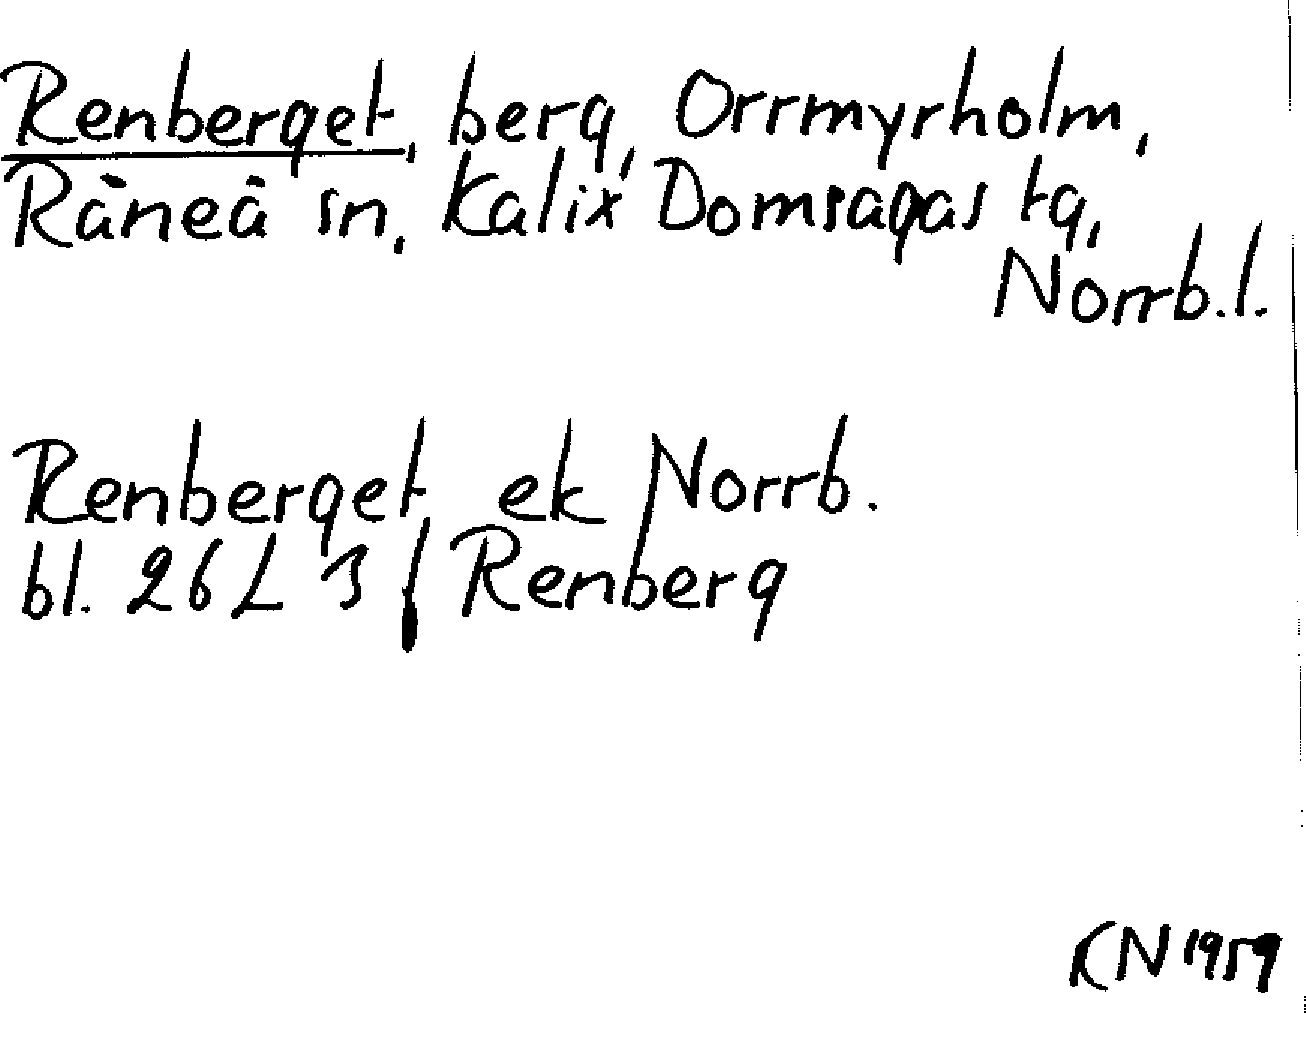 Renberget, berg, Orrmyrholm,
Råneå sn, Kalix Domsagas tg,
Norrb.l.
Renberget ek Norrb.
bl. 26 L 3 / Renberg
KN 1959